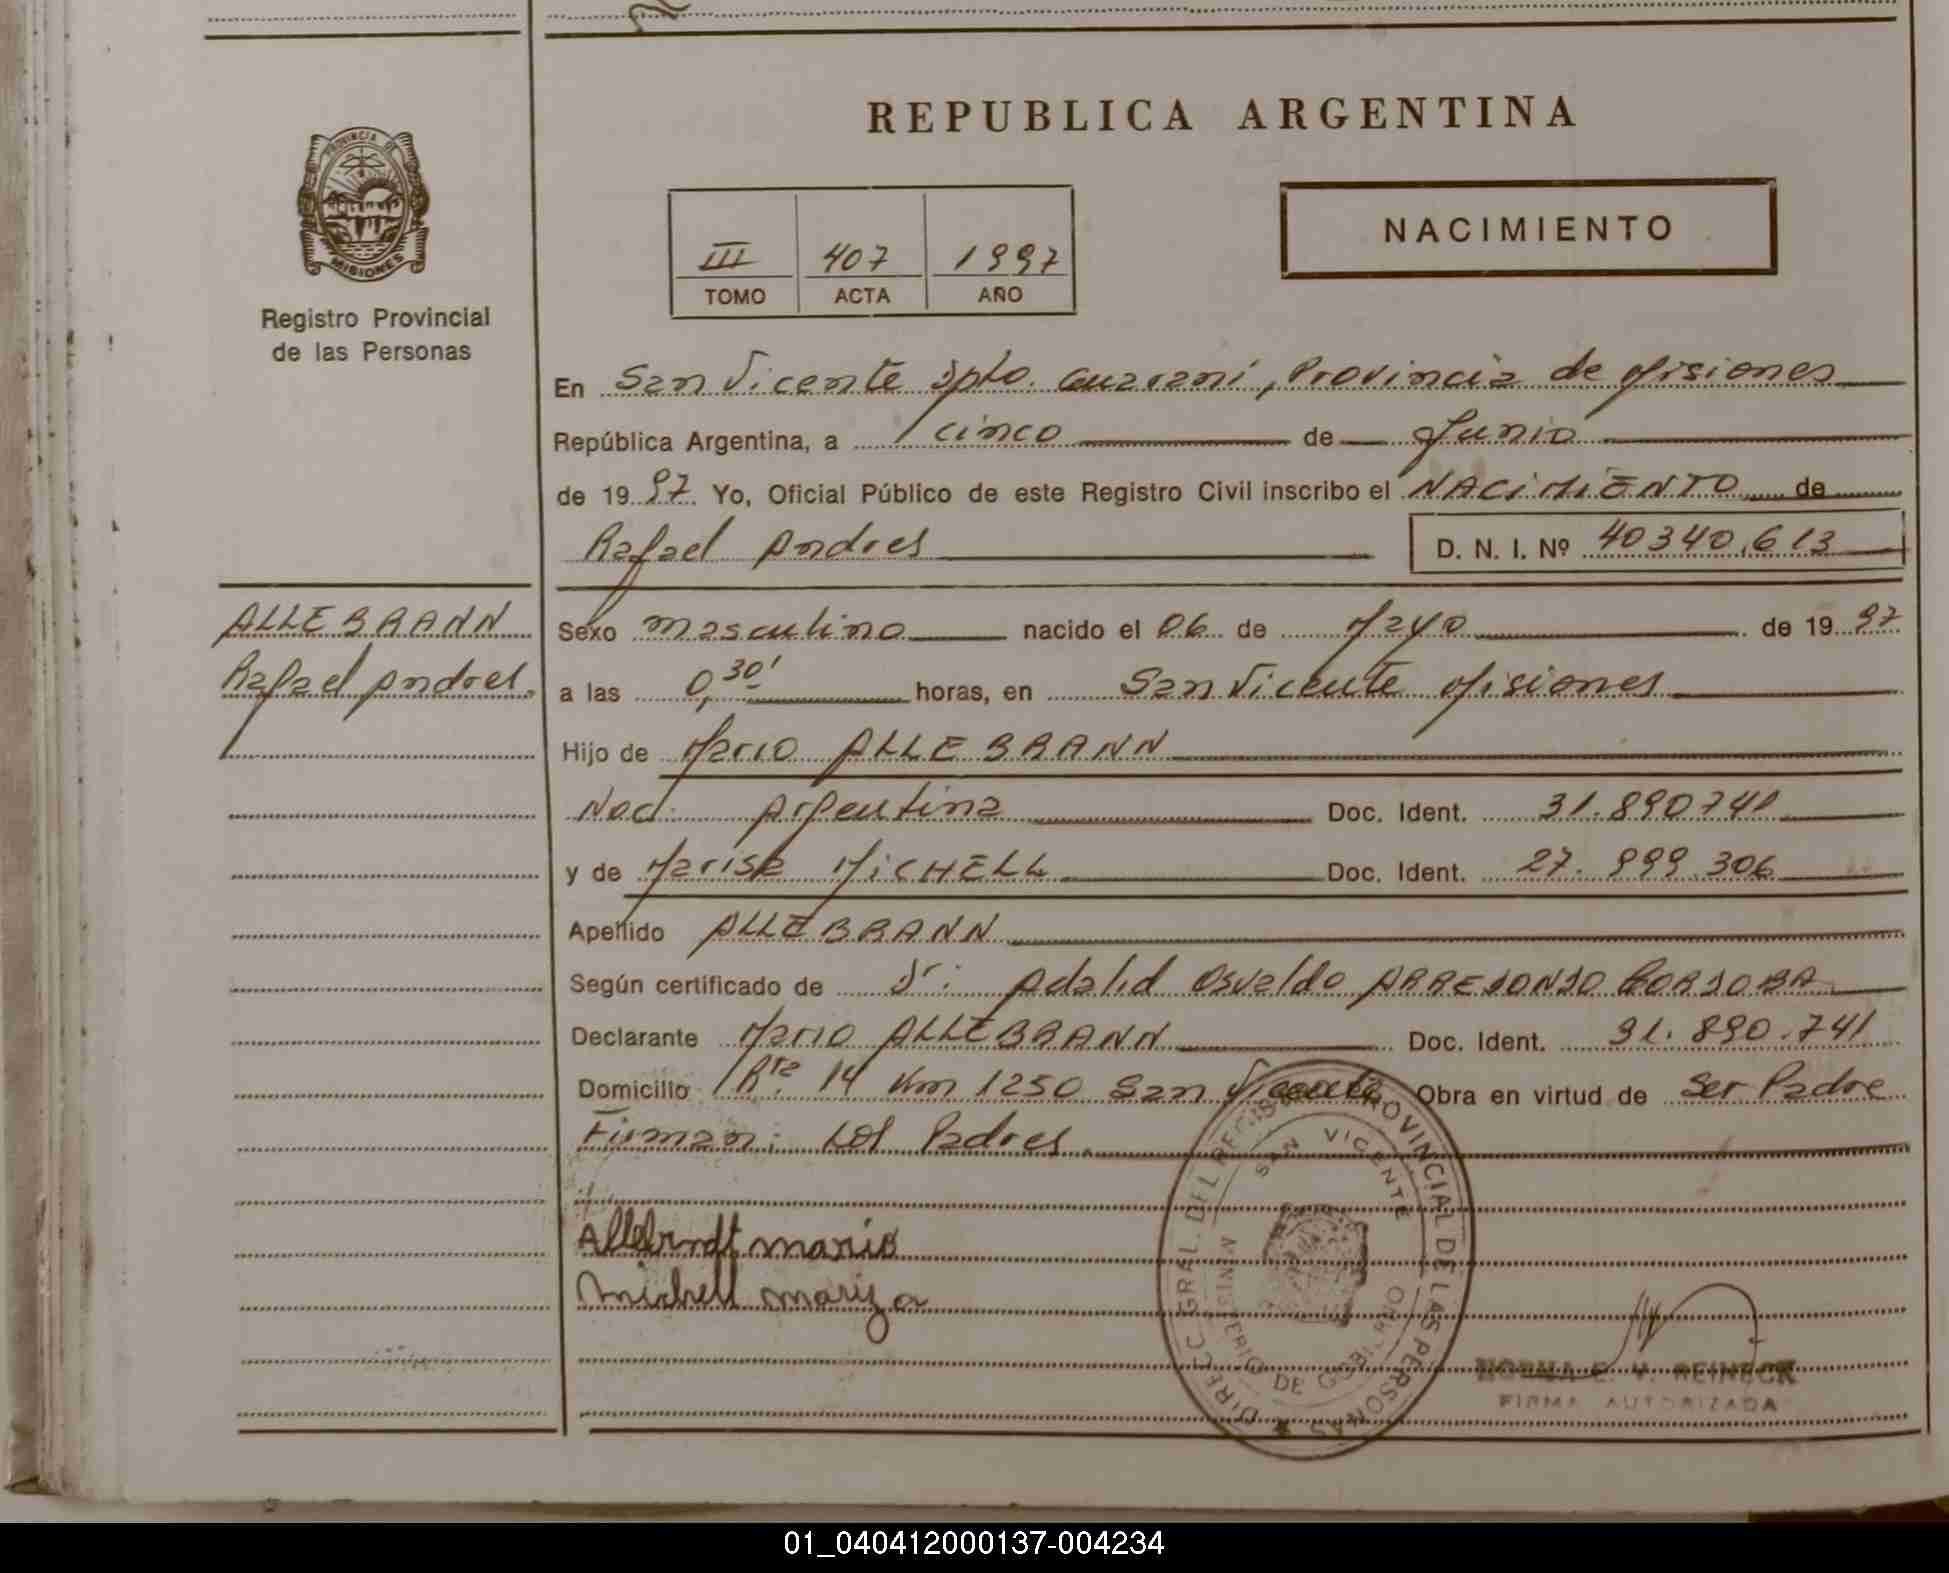 REPUBLICA ARGENTINA
PROVINCIA DE
MISIONES
Registro Provincial
de las Personas
III 407 1997
TOMO ACTA AÑO
NACIMIENTO
En San Vicente Dpto. Guaraní, Provincia de Misiones
República Argentina, a cinco de Junio
de 1997 Yo, Oficial Público de este Registro Civil inscribo el NACIMIENTO de
Rafael Andres D. N. I. Nº 40340.613
ALLEBRANN
Rafael Andres.
Sexo Masculino nacido el 06 de Mayo de 1997
a las 0,30' horas, en San Vicente Misiones
Hijo de Mario ALLEBRANN
Nac: Argentina Doc. Ident. 31.890741
y de Marisa MICHELL Doc. Ident. 27.999.306
Apellido ALLEBRANN
Según certificado de Dr: Adalid Osvaldo
Declarante Mario ALLEBRANN Doc. Ident. 31.890.741
Domicilio Rta 14 Km 1250 San Vicente Obra en virtud de Ser Padre
Firman: Los Padres
Allebrndt mario
Michell mariza
DIRECC GRAL. DEL REGISTRO PROVINCIAL DE LAS PERSONAS
SAN VICENTE
MINISTERIO DE GOBIERNO
NORMA E. V. REINECK
FIRMA AUTORIZADA
01_040412000137-004234